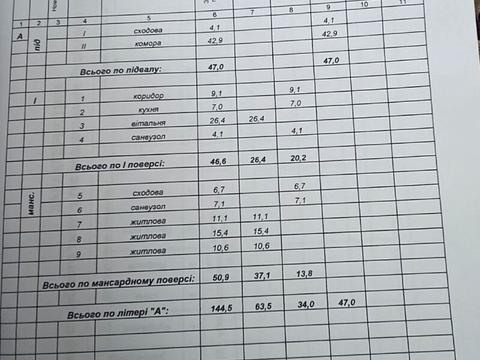 1 2 3 4 5 6 7 8 9 10 11
А під I сходова 4,1 4,1
II комора 42,9 42,9
Всього по підвалу: 47,0 47,0
I 1 коридор 9,1 9,1
2 кухня 7,0 7,0
3 вітальня 26,4 26,4
4 санвузол 4,1 4,1
Всього по I поверсі: 46,6 26,4 20,2
манс. 5 сходова 6,7 6,7
6 санвузол 7,1 7,1
7 житлова 11,1 11,1
8 житлова 15,4 15,4
9 житлова 10,6 10,6
Всього по мансардному поверсі: 50,9 37,1 13,8
Всього по літері "А": 144,5 63,5 34,0 47,0